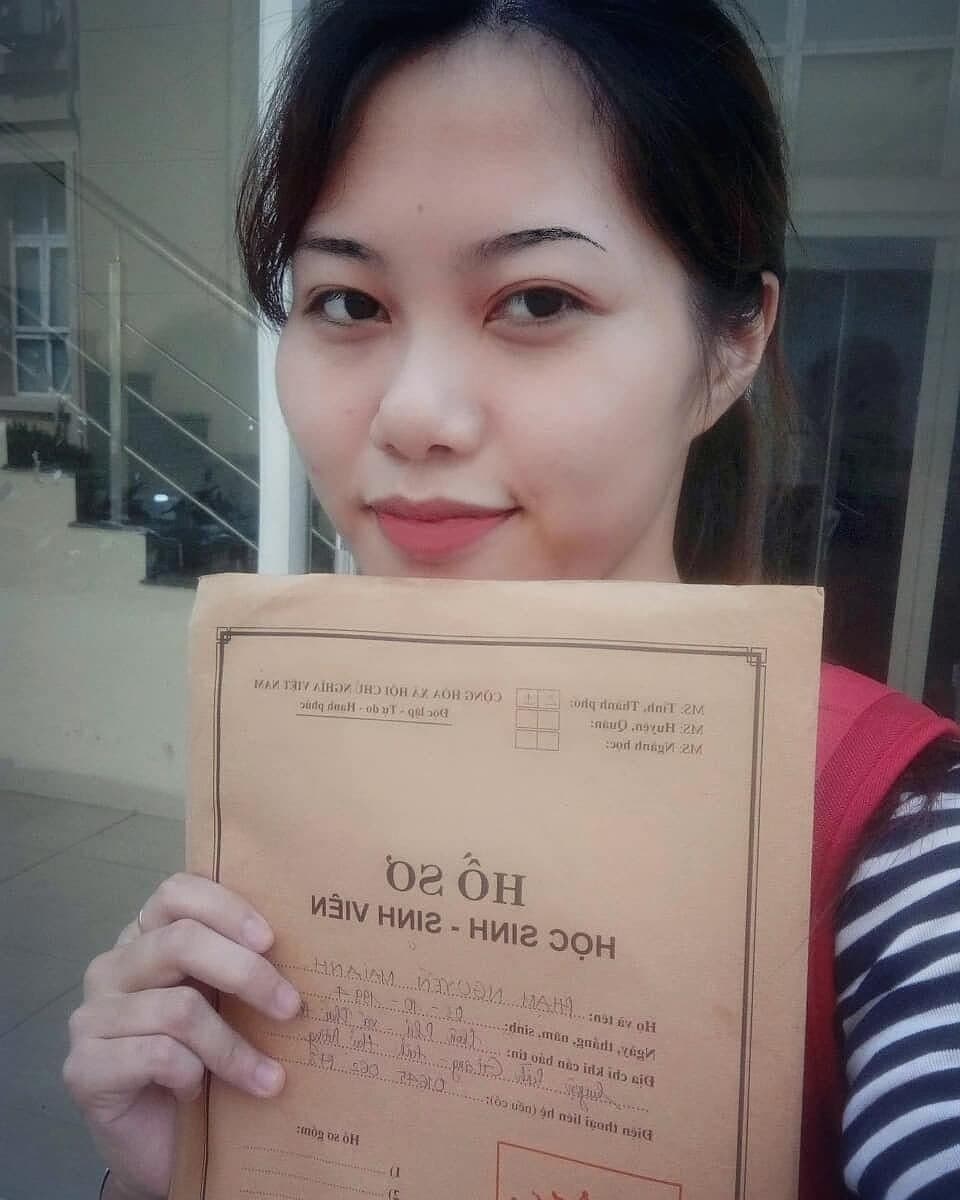 CỘNG HÒA XÃ HỘI CHỦ NGHĨA VIỆT NAM
Độc lập - Tự do - Hạnh phúc
MS: Tỉnh, Thành phố:
MS: Huyện, Quận:
MS: Ngành học:
HỒ SƠ
HỌC SINH - SINH VIÊN
Họ và tên: PHẠM NGUYỄN MAI ANH
Ngày, tháng, năm, sinh: - 10 - 1997
Địa chỉ khi cần báo tin: Thôn xã
huyện - tỉnh Hải Dương
Điện thoại liên hệ (nếu có): 01645 062
Hồ sơ gồm:
1)
2)